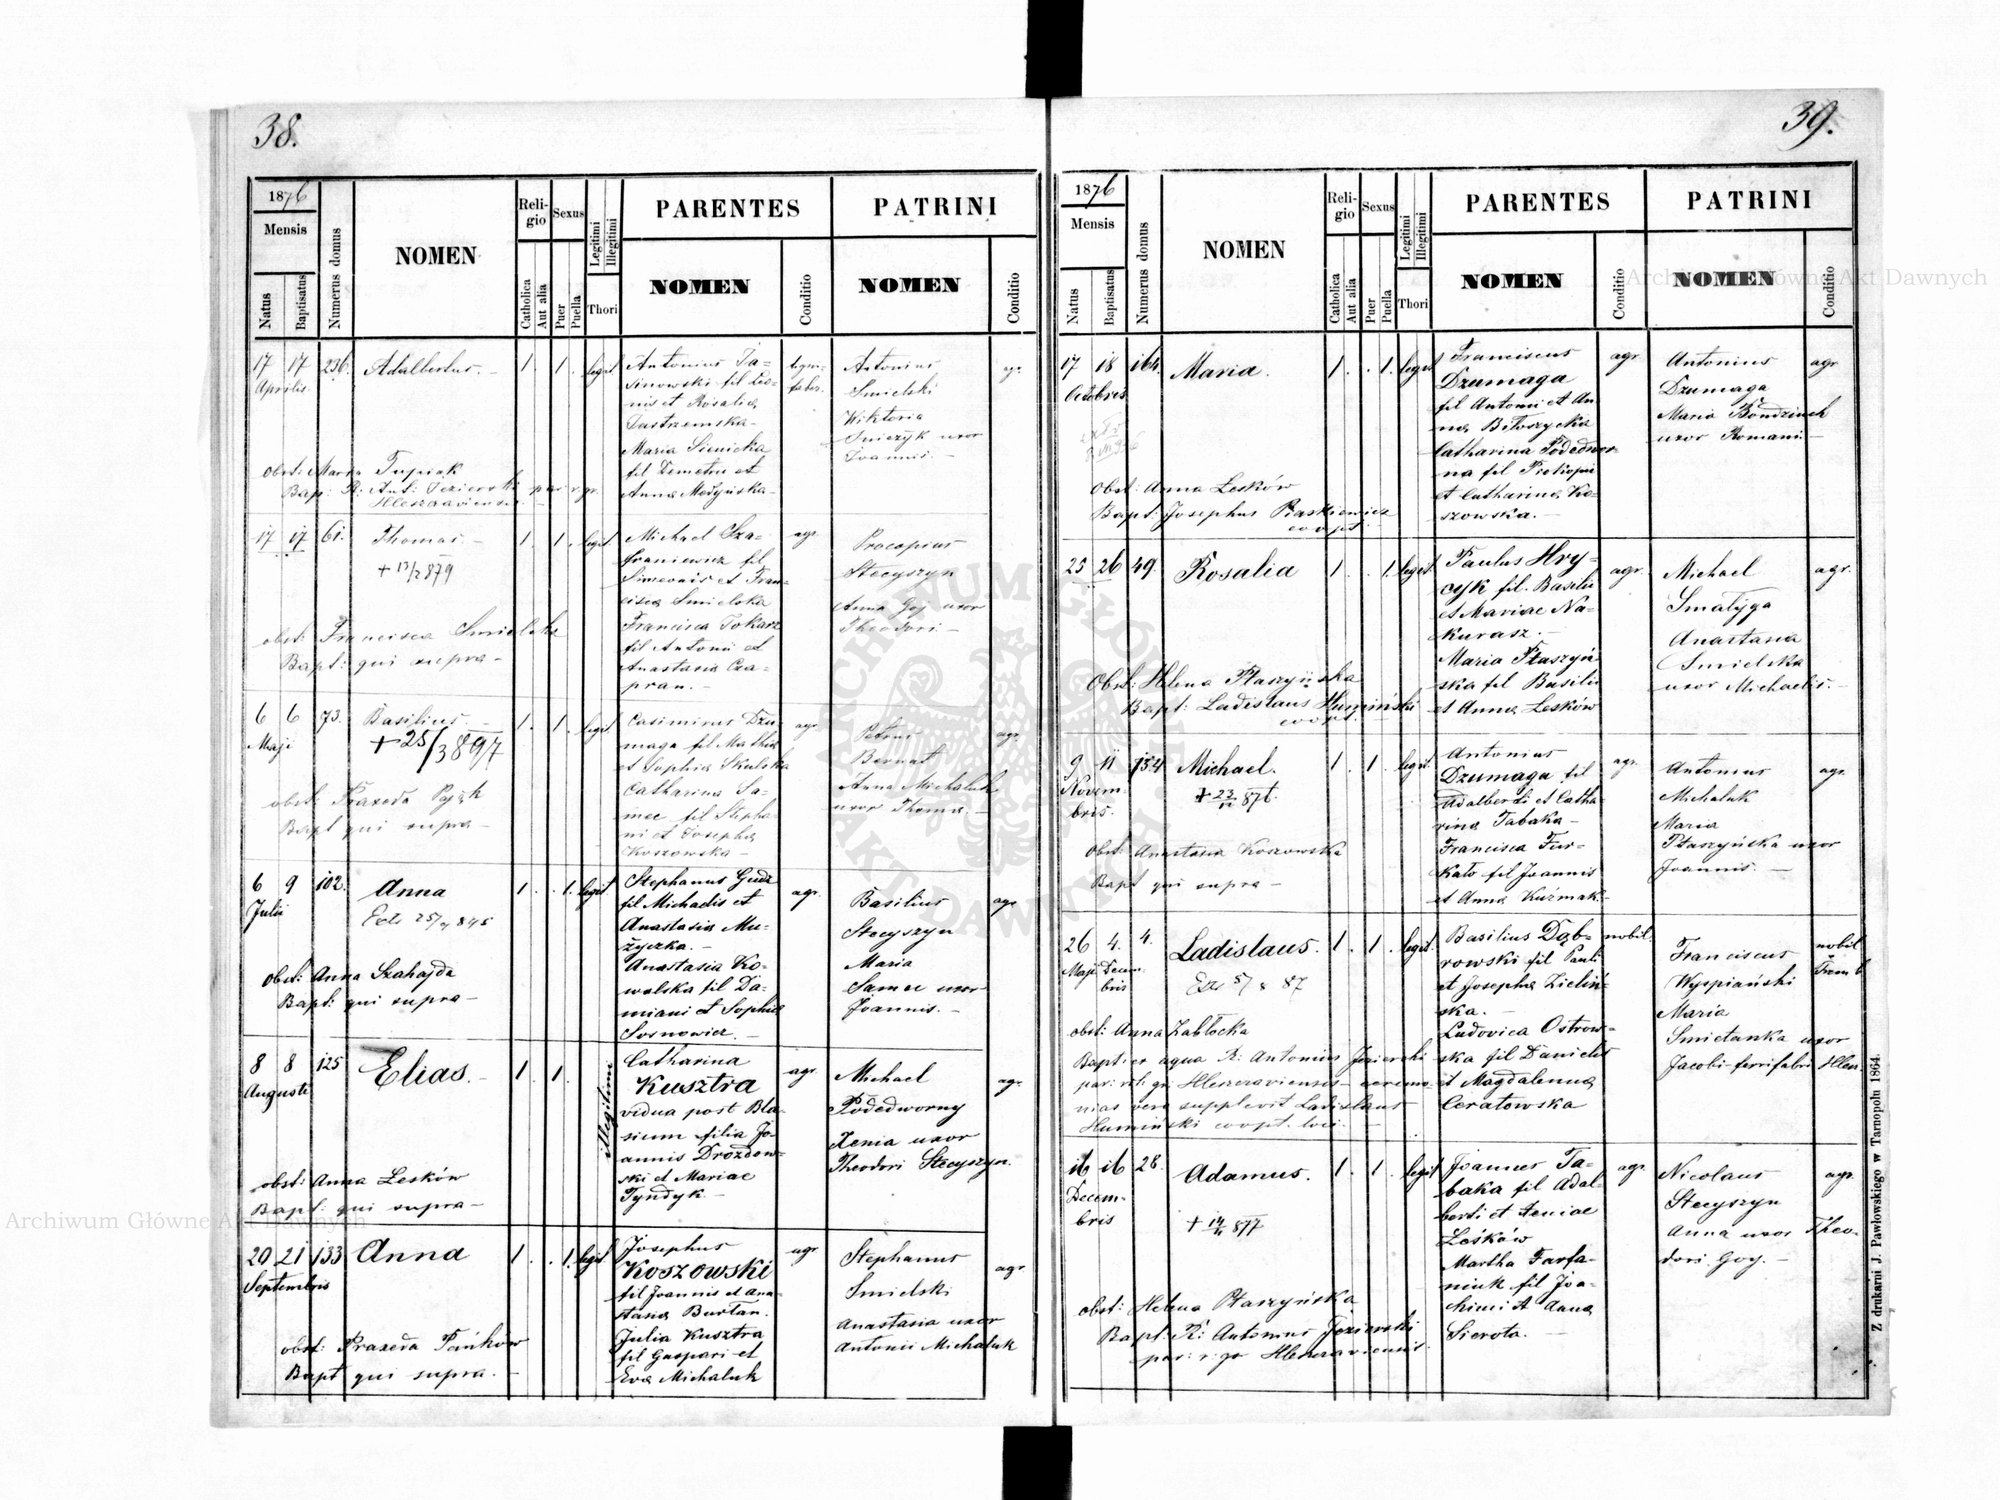 38.
1876
Mensis
Natus
Baptisatus
Numerus domus
NOMEN
Reli-
gio
Catholica
Aut alia
Sexus
Puer
Puella
Legitimi
Illegitimi
Thori
PARENTES
NOMEN
Conditio
PATRINI
NOMEN
Conditio
17 17 236. Adalbertus. 1. 1. legit
Aprilis
Antonius Ta-
sinowski fil Leo-
nis et Rosalia
Jastrzemska
Maria Sienicka
fil Demetrii et
Anna Medyńska
Antonius
Smielski
Wiktoria
uxor
Joannis.
agr.
obst: Maria Tupiak
Bap: R: Ant: Jezierski par r. gr.
Hleszczaviensis
17 17 61. Thomas 1. 1. legit
+ 13/2 879
Michael Sza-
franiewicz fil
Simeonis et Fran-
cisca Smielska
Francisca Tokarz
fil Antonii et
Anastasia Cza-
pran.
agr.
Procopius
Stecyszyn
Anna Goj uxor
Theodori
obst: Francisca Smielska
Bapt: qui supra
6 6 73. Basilius 1. 1. legit
Maji
+ 25/3 897
Casimirus Dzu-
maga fil Mathia
et Sophia Skulska
Catharina Sa-
mec fil Stepha-
ni et Josepha
Koszowska
agr.
Petrus
Bernat
Anna Michaluk
uxor Thoma.
agr.
obst: Praxeda Pająk
Bapt qui supra
6 9 102. Anna 1. 1. legit
Julii
Stephanus Guda
fil Michaelis et
Anastasia Mu-
zyczka.
Anastasia Ko-
walska fil Da-
miani et Sophia
Sosnowicz.
agr.
Basilius
Stecyszyn
Maria
Samec uxor
Joannis.
agr
obst: Anna Szahajda
Bapt: qui supra
8 8 125 Elias. 1. 1. illegitimi
Augusti
Catharina
Kusztra
vidua post Bla-
sium filia Jo-
annis Drozdow-
ski et Mariae
Tyndyk
agr.
Michael
Podedworny
Xenia uxor
Theodori Stecyszyn.
agr.
obst: Anna Lesków
Bapt: qui supra
20 21 133 Anna 1. 1. legit
Septembris
Josephus
Koszowski
fil Joannis et Ana-
stasia Burtan.
Julia Kusztra
fil Gaspari et
Eva Michaluk
agr
Stephanus
Smielski
Anastasia uxor
Antonii Michaluk
agr.
obst: Praxeda Pańków
Bapt qui supra.
39.
1876
Mensis
Natus
Baptisatus
Numerus domus
NOMEN
Reli-
gio
Catholica
Aut alia
Sexus
Puer
Puella
Legitimi
Illegitimi
Thori
PARENTES
NOMEN
Conditio
PATRINI
NOMEN
Conditio
17 18 164. Maria. 1. 1. legit
Octobris
Franciscus
Dzumaga
fil Antonii et An
na Bitoszycka
Catharina Podedwor-
na fil Prokopii
et Catharina Ko-
szowska.
agr
Antonius
Dzumaga
Maria Bondziuch
uxor Romani
agr
Obst: Anna Lesków
Bapt: Josephus Piaskiewicz
coopt.
25 26 49. Rosalia 1. 1. legit
Paulus Hry-
cyk fil. Basilii
et Mariae Na-
kurasz.
Maria Ptaszyń
ska fil Basilii
et Anna Lesków
agr.
Michael
Smatyga
Anastasia
Smielska
uxor Michaelis.
agr.
Obst: Helena Ptaszyńska
Bapt: Ladislaus Humiński
coopt.
9 11 134 Michael. 1. 1. legit
Novem-
bris.
+ 23/11 876.
Antonius
Dzumaga fil
Adalberti et Catha-
rina Tabaka
Francisca Fur-
kało fil Joannis
et Anna Kuźmak
agr.
Antonius
Michaluk
Maria
Ptaszyńska uxor
Joannis.
agr.
Obst: Anastasia Koszowska
Bapt qui supra
26 4. 4. Ladislaus. 1. 1. legit
Maji Decem
bris
Basilius Dąb-
rowski fil Pauli
et Josepha Zieliń-
ska.
Ludovica Ostrow-
ska fil Danielis
et Magdalenae
Ceratowska
nobil.
Franciscus
Wyspiański
Maria
Smietanka uxor
Jacobi ferrifabri
nobil
obst: Anna Zabłocka
Bapt: ex aqua R: Antonius Jezierski
par: rit: gr. Hleszczaviensis ceremo-
nias vero supplevit Ladislaus
Humiński coopt. loci.
16 16 28. Adamus. 1. 1. legit
Decem-
bris
Joannes Ta-
baka fil Adal-
berti et Xeniae
Lesków
Martha Farfa-
niuk fil Joa-
chimi et Anna
Sierota.
agr.
Nicolaus
Stecyszyn
Anna uxor Theo-
dori Goy.
agr.
obst: Helena Ptaszyńska
Bapt: R: Antonius Jezierski
par: r: gr Hleszczaviensis.
Z drukarni J. Pawłowskiego w Tarnopolu 1864.
Archiwum Główne Akt Dawnych
Archiwum Główne Akt Dawnych
ARCHIWUM GŁÓWNE
AKT DAWNYCH